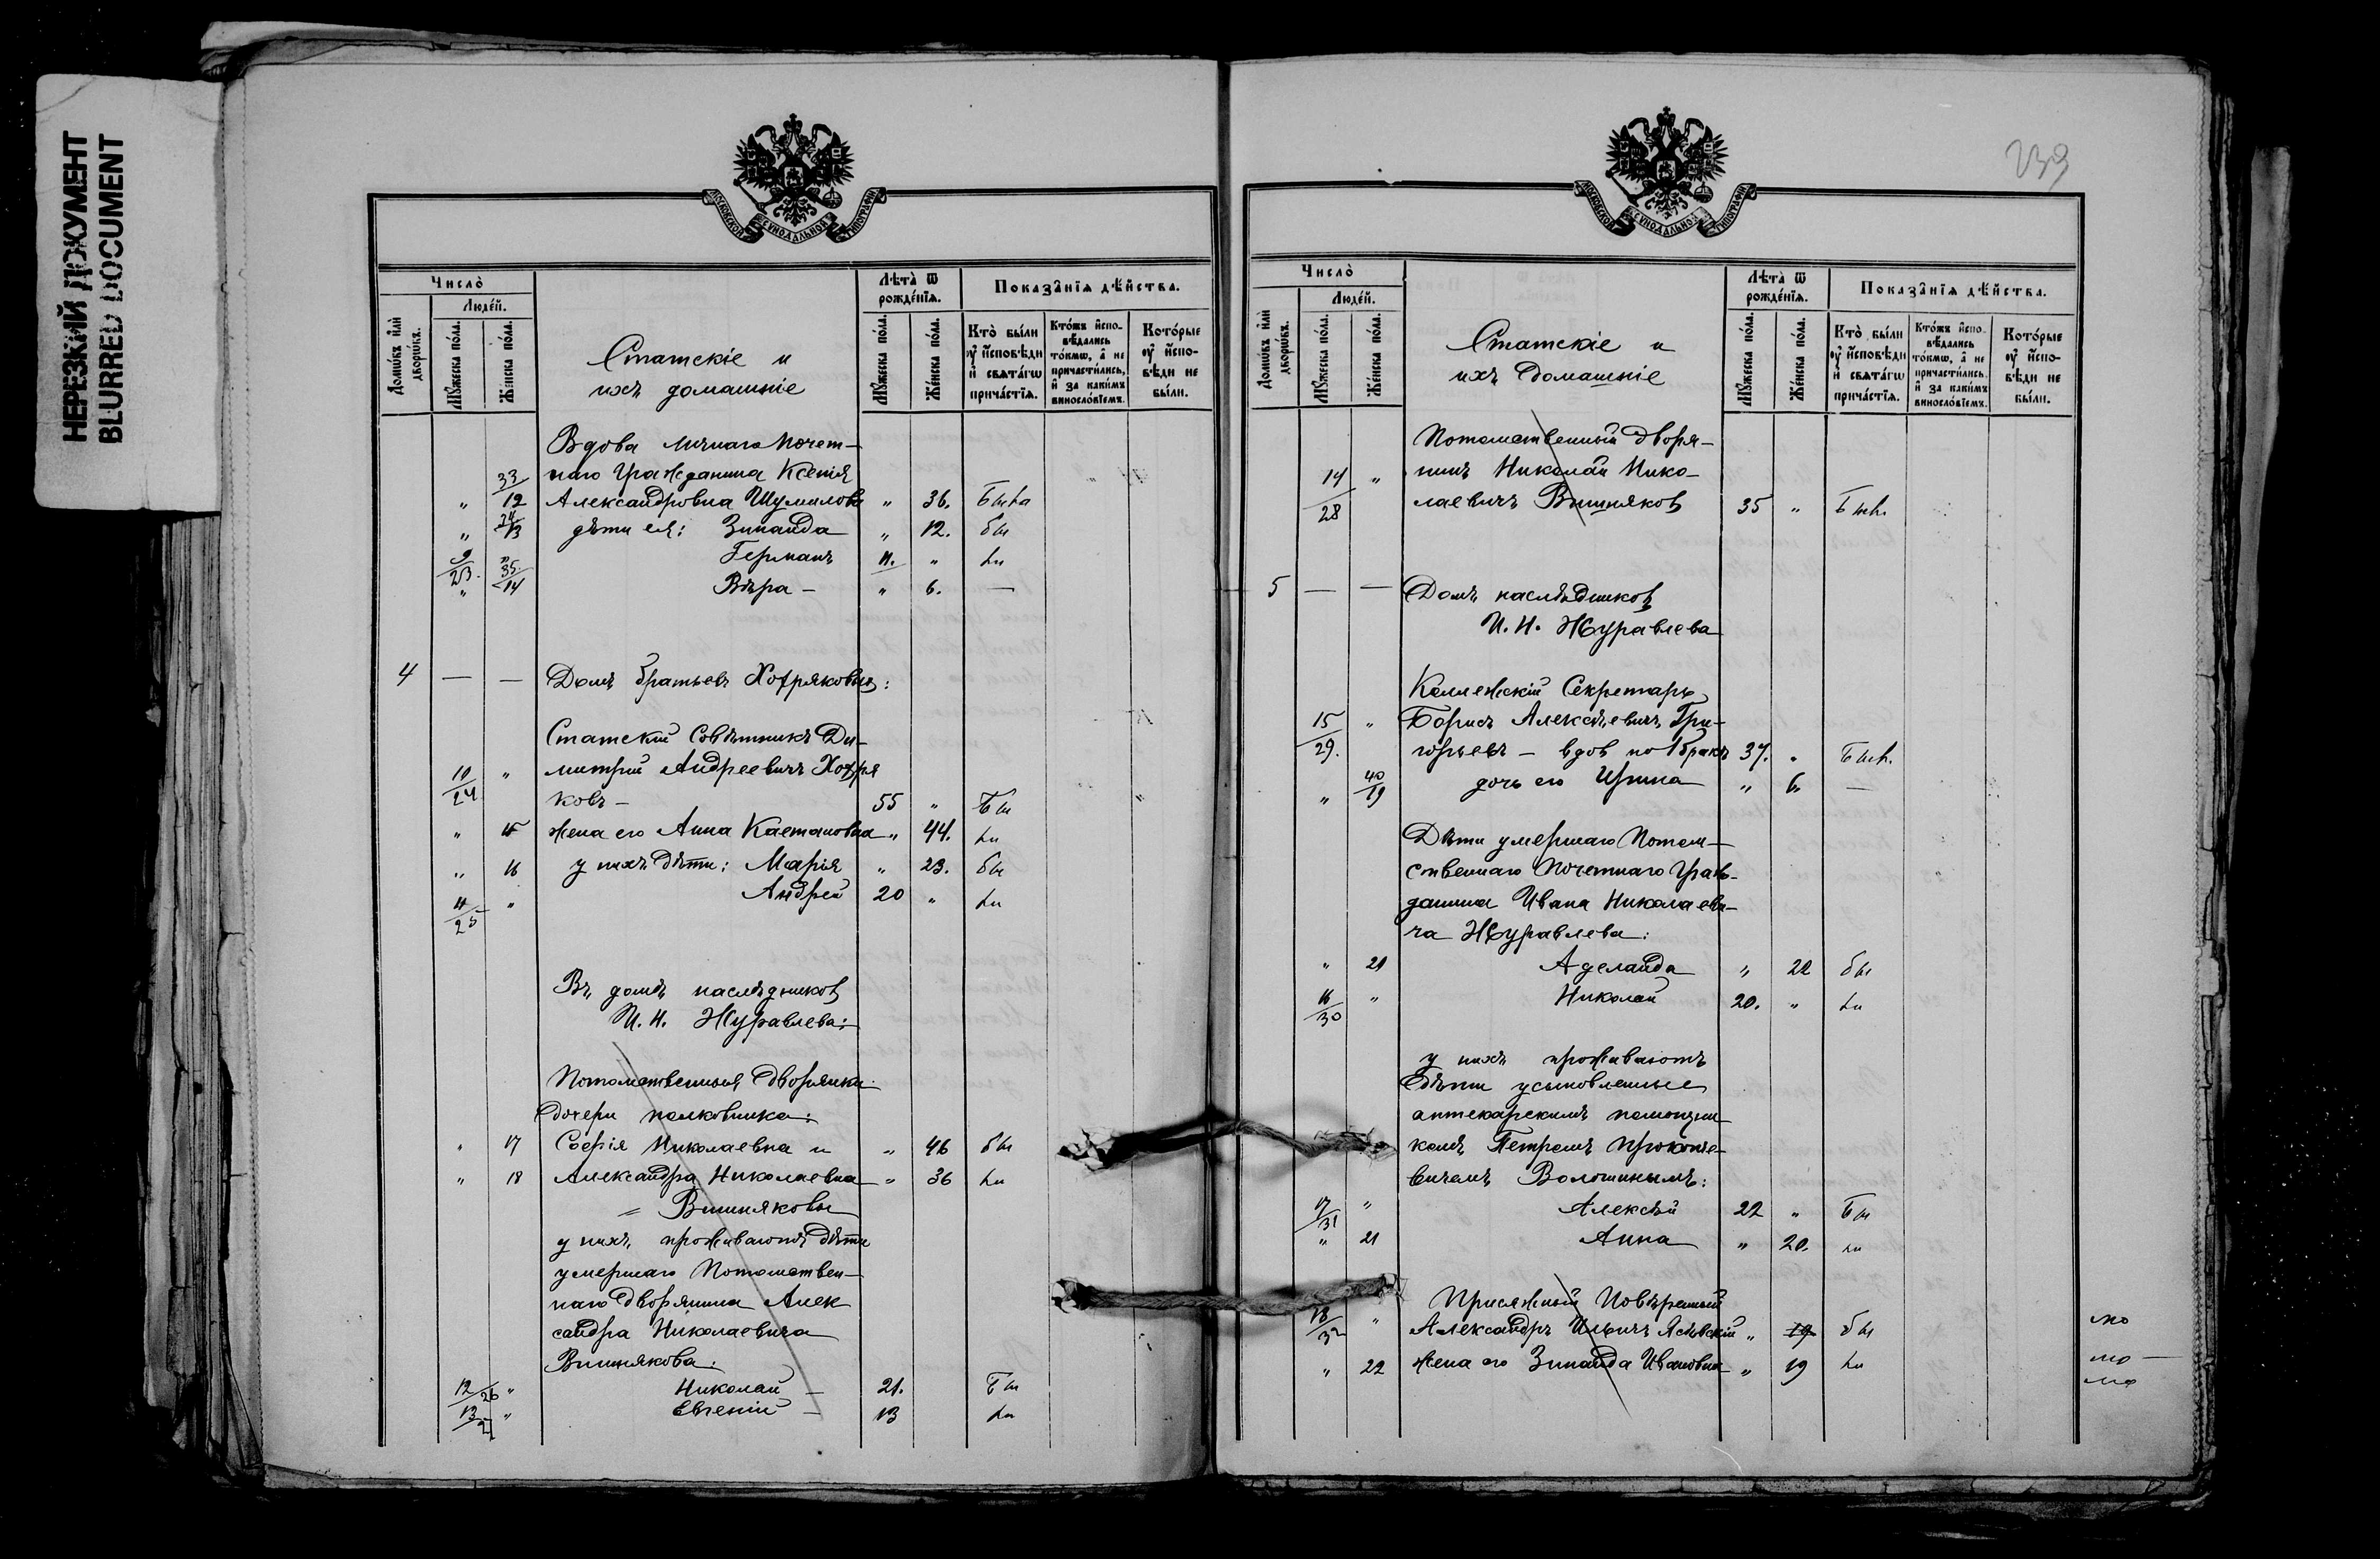 НЕРЕЗКИЙ ДОКУМЕНТ
BLURRED DOCUMENT
МОСКОВСКОЙ СУНОДАЛЬНОЙ ТИПОГРАФІИ
Число̀
Домѡ́въ и҆лѝ дворѡ́въ.
Люде́й.
Мꙋ́жеска по́ла.
Же́нска по́ла.
Статскіе и
ихъ домашніе
Лѣта̀ ѿ рожде́нїѧ.
Мꙋ́жеска по́ла.
Же́нска по́ла.
Показа̑нїѧ дѣ́йства.
Кто̀ бы́ли ᲂу҆ и҆́сповѣди и҆ свѧта́гѡ прича́стїѧ.
Кто́жъ и҆спо-вѣ́дались то́кмѡ, а҆ не причасти́лись, и҆ за каки́мъ винословіемъ.
Кото́рые ᲂу҆ и҆́спо-вѣди не бы́ли.
Вдова личнаго Почет-
33 наго Гражданина Ксенія
" 12 Александровна Шумилова " 36. Быва
" 34 13 дѣти ея: Зинаида " 12. бы
9 23. " Германъ 11. " ли
" 35. 14 Вѣра - " 6. —
4 — — Домъ братьевъ Хотряковыхъ:
Статскій Совѣтникъ Ди-
10 24 " митрій Андреевичъ Хотря
ковъ - 55 " Бы
" 15 жена его Анна Каетановна " 44. ли
" 16 у нихъ дѣти: Марія " 23. бы
11 25 " Андрей 20 " ли
Въ домѣ наслѣдниковъ
И. Н. Журавлева:
Потомственныя Дворянки
дочери полковника:
" 17 Софія Николаевна и " 46 бы
" 18 Александра Николаевна " 36 ли
Вишняковы
у нихъ проживаютъ дѣти
умершаго Потомствен-
наго Дворянина Алек
сандра Николаевича
Вишнякова:
12 26 " Николай — 21. Бы
13 27 " Евгеній — 13 ли
239
МОСКОВСКОЙ СУНОДАЛЬНОЙ ТИПОГРАФІИ
Число̀
Домѡ́въ и҆лѝ дворѡ́въ.
Люде́й.
Мꙋ́жеска по́ла.
Же́нска по́ла.
Статскіе и
ихъ домашніе
Лѣта̀ ѿ рожде́нїѧ.
Мꙋ́жеска по́ла.
Же́нска по́ла.
Показа̑нїѧ дѣ́йства.
Кто̀ бы́ли ᲂу҆ и҆́сповѣди и҆ свѧта́гѡ прича́стїѧ.
Кто́жъ и҆спо-вѣ́дались то́кмѡ, а҆ не причасти́лись, и҆ за каки́мъ винословіемъ.
Кото́рые ᲂу҆ и҆́спо-вѣди не бы́ли.
Потомственный Дворя-
14 " нинъ Николай Нико-
28 лаевичъ Вишняковъ 35 "
5 — — Домъ наслѣдниковъ
И. Н. Журавлева
Коллежскій Секретарь
15 " Борисъ Алексѣевичъ Гри-
29. горьевъ — вдов по 1 бракѣ 37. "
" дочь его Ирина " 6. —
Дѣти умершаго Потом-
ственнаго Почетнаго Граж-
данина Ивана Николаеви-
ча Журавлева:
" 21 Аделаида " 22 бы
16 30 " Николай 20. " ли
у нихъ проживаютъ
дѣти усыновленные
аптекарскимъ помощни
комъ Петромъ Прокопіе-
вичемъ Волошинымъ:
17 31 " Алексѣй 22 " Бы
" 21 Анна " 20. ли
Присяжный Повѣренный
18 32 " Александръ Ильичъ " 19 бы
" 22 жена его Зинаида Ивановна " 19 ли